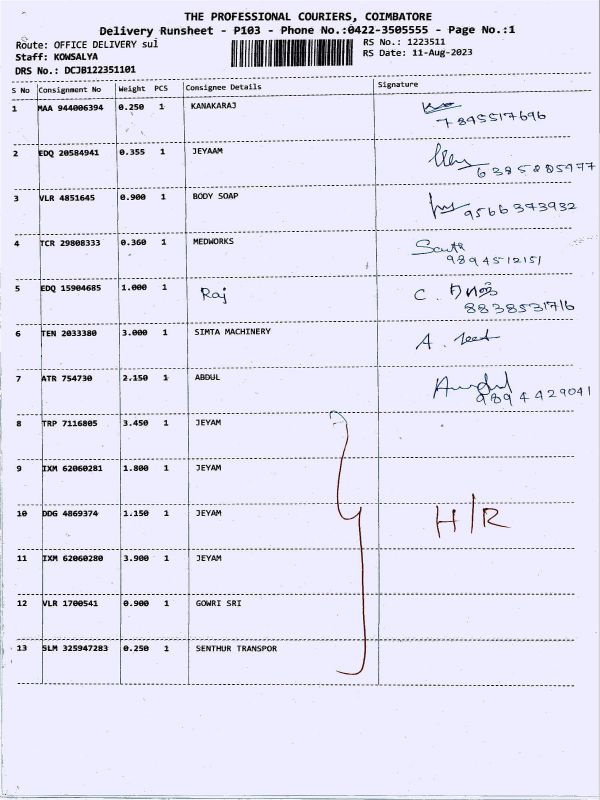 THE PROFESSIONAL COURIERS, COIMBATORE
Delivery Runsheet - P103 - Phone No.:0422-3505555 - Page No.:1
Route: OFFICE DELIVERY sul
RS No.: 1223511
Staff: KOWSALYA
RS Date: 11-Aug-2023
DRS No.: DCJB122351101
S No Consignment No Weight PCS Consignee Details Signature
1 MAA 944006394 0.250 1 KANAKARAJ
7895517696
2 EDQ 20584941 0.355 1 JEYAAM
6385885977
3 VLR 4851645 0.900 1 BODY SOAP
9566373932
4 TCR 29808333 0.360 1 MEDWORKS
9894512151
5 EDQ 15904685 1.000 1 Raj C.
8838531716
6 TEN 2033380 3.000 1 SIMTA MACHINERY A.
7 ATR 754730 2.150 1 ABDUL
9894429041
8 TRP 7116805 3.450 1 JEYAM
9 IXM 62060281 1.800 1 JEYAM
10 DDG 4869374 1.150 1 JEYAM H/R
11 IXM 62060280 3.900 1 JEYAM
12 VLR 1700541 0.900 1 GOWRI SRI
13 SLM 325947283 0.250 1 SENTHUR TRANSPOR